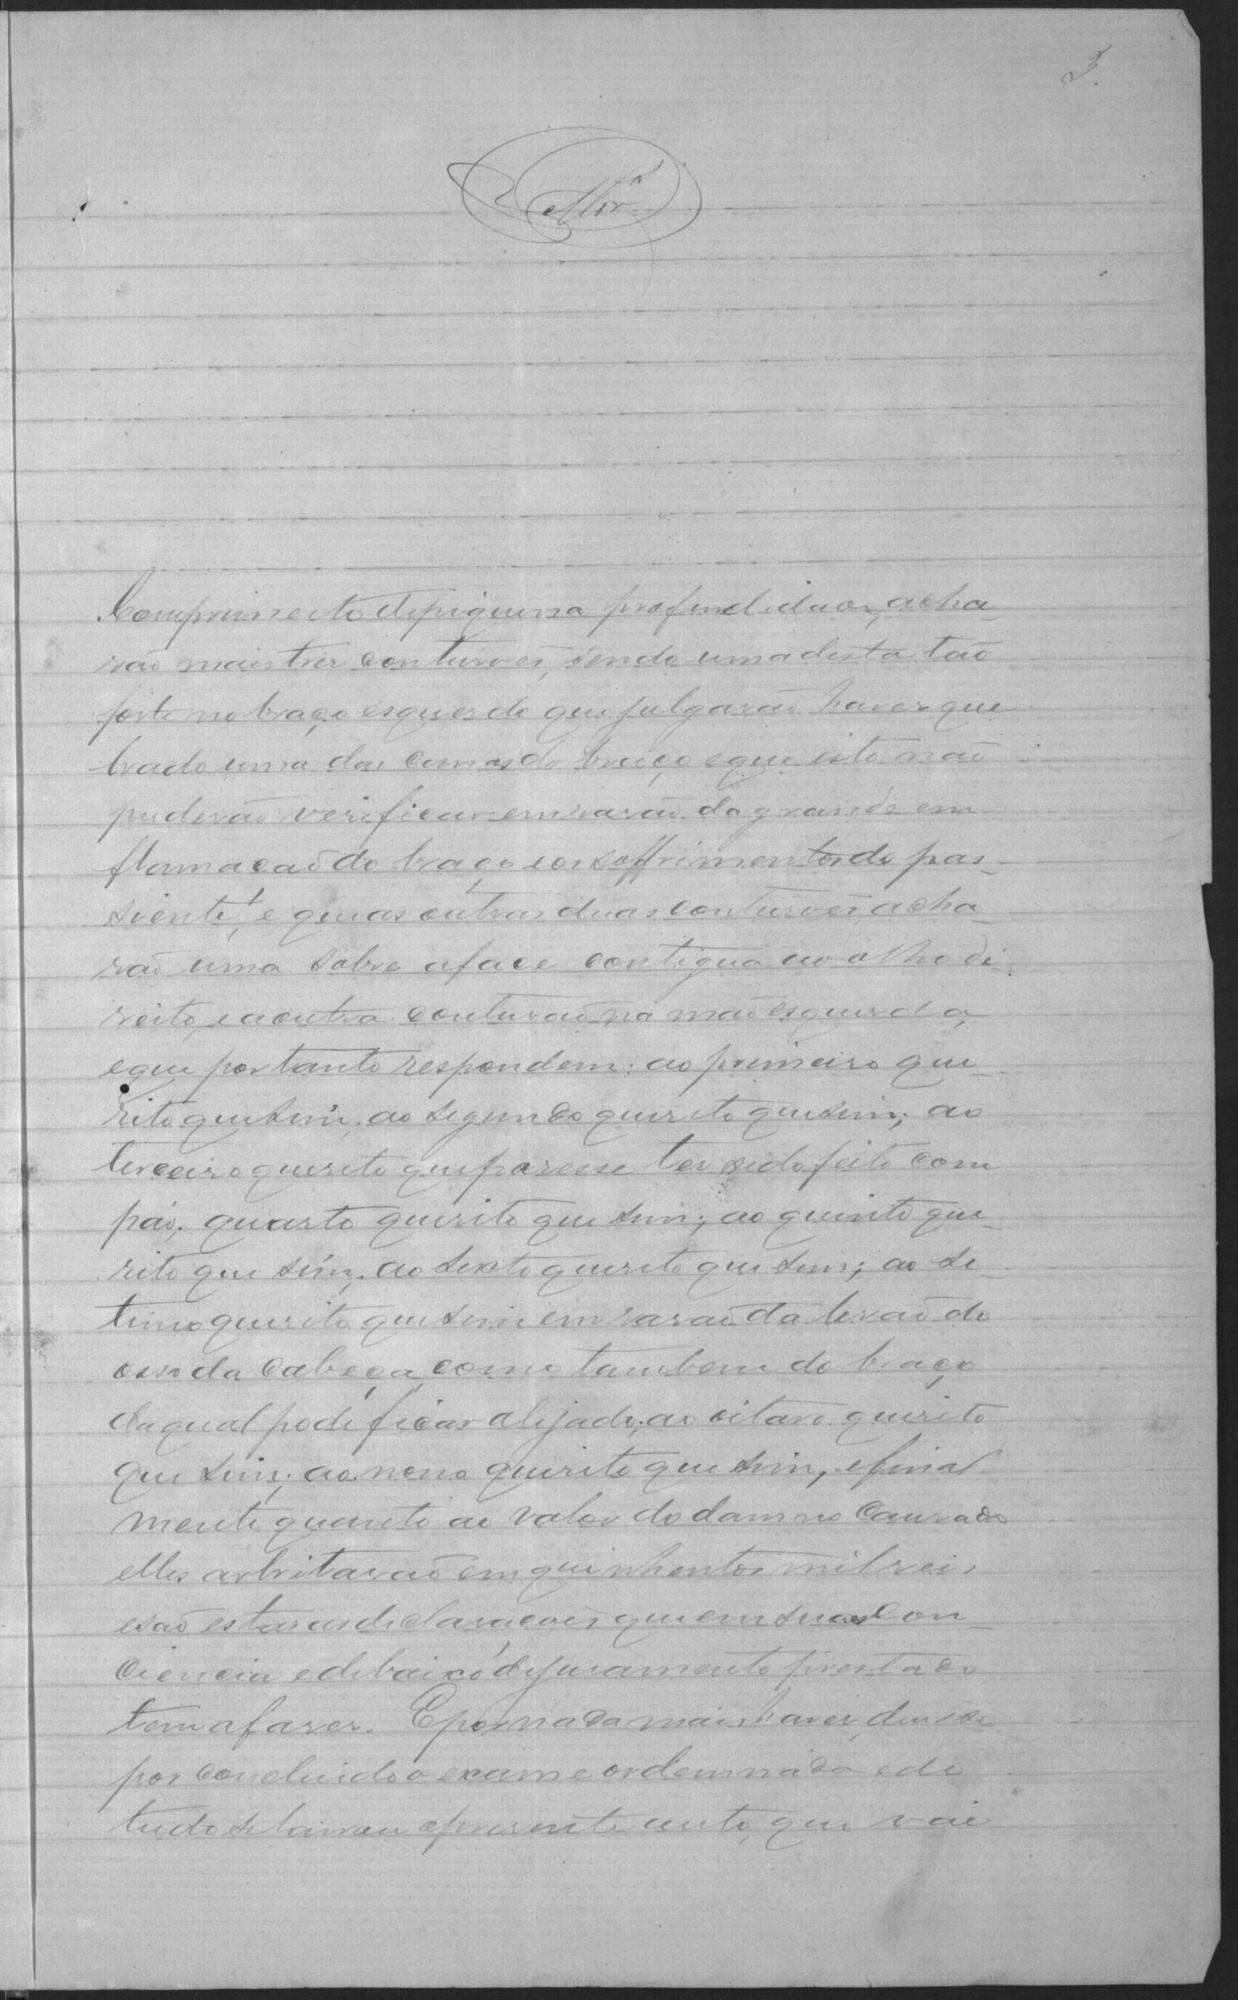 3
Comprimento de piquena profundidade, acha-
rão mais tres contuzoes, sendo uma desta tão
forte no braço esquerdo que julgarão haver que
brado uma das cannas do braço e que isto não
puderão verificar em razão da grande em
flamação do braço e os soffrimentos do pas-
siente, e que as outras duas contuzoēs acha-
rão uma sobre a face contigua ao olho di
reito, e a outra contuzão na mão esquerda,
e que portanto respondem: ao primeiro que-
rito que sim, ao segundo quirito que sim; ao
terceiro quirito que paresse ter sido feito com
páo, quarto quirito que sim; ao quinto que-
rito que sim, ao sexto quirito que sim; ao se-
timo quirito que sim em razão da lezão do
osso da Cabeça, como tambem do braço
da qual pode ficar alijado; ao oitavo quirito
que sim; ao nono quirito que sim, e final
mente quanto ao valor do damno Cauzado
elles arbitarão em quinhentos mil reis
e são estas as declaraçoēs que em sua Con-
ciencia e debaixo de juramento prestado
tem a fazer. E por nada mais haver deu-se
por concluido o exame ordennado e de
tudo se lavrou o prezente auto, que vai